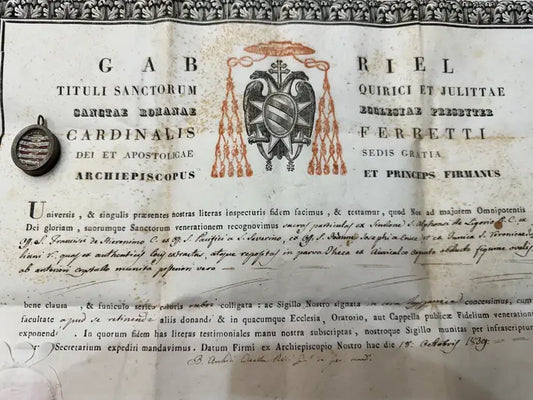 GABRIEL
TITULI SANCTORUM QUIRICI ET JULITTAE
SANCTAE ROMANAE ECCLESIAE PRESBYTER
CARDINALIS FERRETTI
DEI ET APOSTOLICAE SEDIS GRATIA
ARCHIEPISCOPUS ET PRINCEPS FIRMANUS
Universis, & singulis præsentes nostras literas inspecturis fidem facimus, & testamur, quod Nos ad majorem Omnipotentis
Dei gloriam, suorumque Sanctorum venerationem recognovimus sacras particulas ex Sindone S. Alphonsi de Ligorio C. ex
S. Francisci de Hieronimo C. ex S. Pacifici a S. Severino, ex S. Joannis Josephi a Cruce et ex Tunica S. Veronicae
quas ex authenticis locis extractas, atque repositas in parva theca ex figurae ovalis
ab anteriori crystallo munita posteriori vero
bene clausa, & funiculo serico coloris rubri colligata : ac Sigillo Nostro signata concessimus, cum
facultate apud se retinendi aliis donandi & in quacumque Ecclesia, Oratorio, aut Cappella publicæ Fidelium venerationi
exponendi. In quorum fidem has literas testimoniales manu nostra subscriptas, nostroque Sigillo munitas per infrascriptum
Secretarium expediri mandavimus. Datum Firmi ex Archiepiscopio Nostro hac die 18. Octobris 1839.